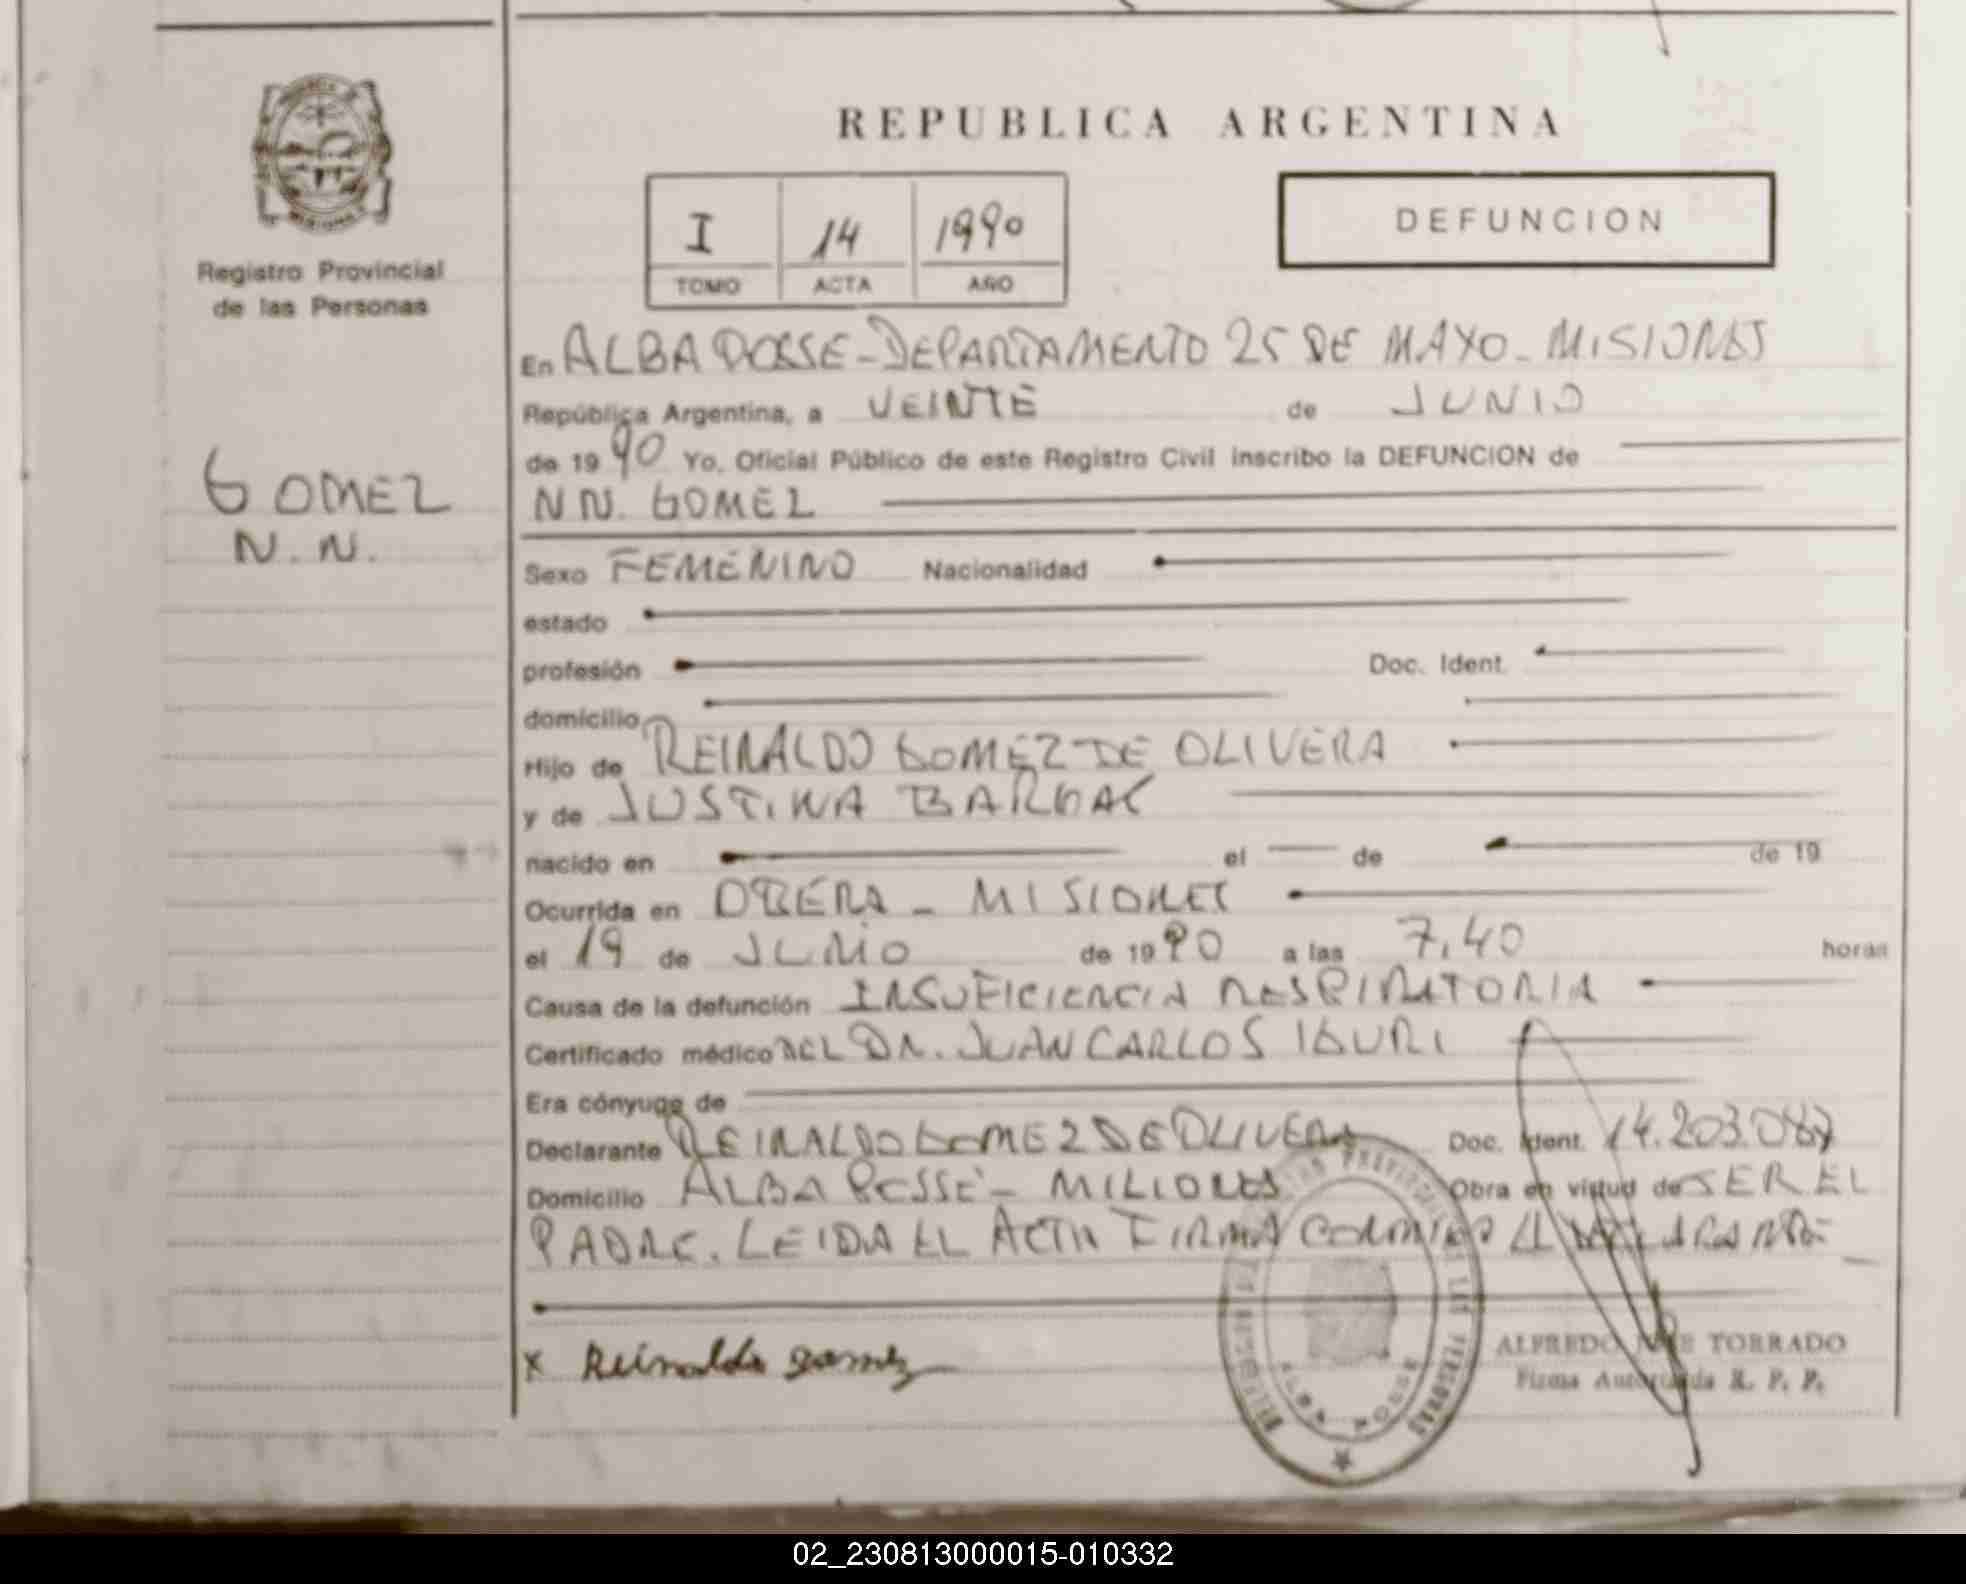 REPUBLICA ARGENTINA
I 14 1990
TOMO ACTA AÑO
DEFUNCION
Registro Provincial
de las Personas
En ALBA POSSE - DEPARTAMENTO 25 DE MAYO - MISIONES
República Argentina, a VEINTE de JUNIO
de 1990 Yo, Oficial Público de este Registro Civil inscribo la DEFUNCION de
NN. GOMEZ
GOMEZ
N. N.
Sexo FEMENINO Nacionalidad
estado
profesión Doc. Ident.
domicilio
Hijo de REINALDO GOMEZ DE OLIVERA
y de JUSTINA BARGAS
nacido en el de de 19
Ocurrida en OBERA - MISIONES
el 19 de JUNIO de 1990 a las 7,40 horas
Causa de la defunción INSUFICIENCIA RESPIRATORIA
Certificado médico DEL DR. JUAN CARLOS IGURI
Era cónyuge de
Declarante REINALDO GOMEZ DE OLIVERA Doc. Ident. 14.203.087
Domicilio ALBA POSSE - MISIONES Obra en virtud de SER EL
PADRE. LEIDA EL ACTA FIRMA CONMIGO EL DECLARANTE
x Reinaldo Gomez
ALBA POSSE
ALFREDO JOSE TORRADO
Firma Autorizada R. P. P.
02_230813000015-010332